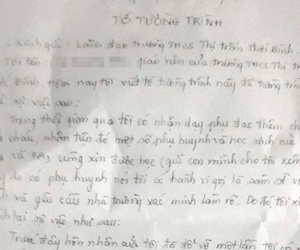 TỜ TƯỜNG TRÌNH
- Kính gửi: Lãnh đạo trường THCS Thị trấn Thái Bình
Tôi tên giáo viên của trường THCS Thị tr
Bình, hôm nay tôi viết tờ tường trình này để tường trình
về sự việc sau:
Trong thời gian qua tôi có nhận dạy phụ đạo thêm ch
cháu, nhằm tiến độ một số phụ huynh và học sinh của
và cũng xin được học (gửi con mình cho tôi kèm
có phụ huynh nói tôi có hành vi gọi là
và yêu cầu nhà trường xác minh làm rõ. Do đó, tôi xi
lại sự việc như sau:
Trước đây hôn nhân của tôi đổ vỡ một lần tôi có